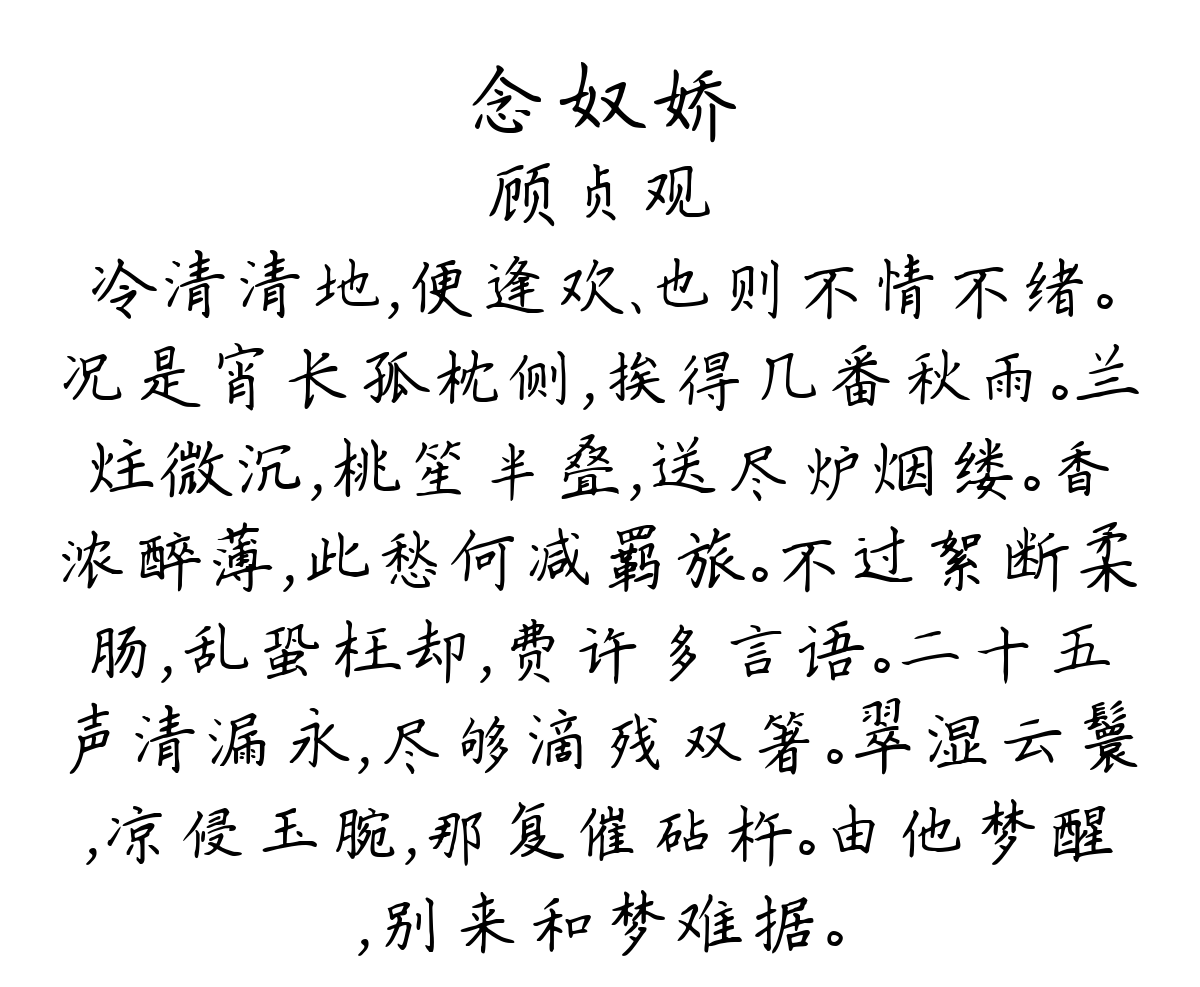 念奴娇
顾贞观
冷清清地,便逢欢、也则不情不绪。
况是宵长孤枕侧,挨得几番秋雨。兰
炷微沉,桃笙半叠,送尽炉烟缕。香
浓醉薄,此愁何减羁旅。不过絮断柔
肠,乱蛩枉却,费许多言语。二十五
声清漏永,尽够滴残双箸。翠湿云鬟
,凉侵玉腕,那复催砧杵。由他梦醒
,别来和梦难据。